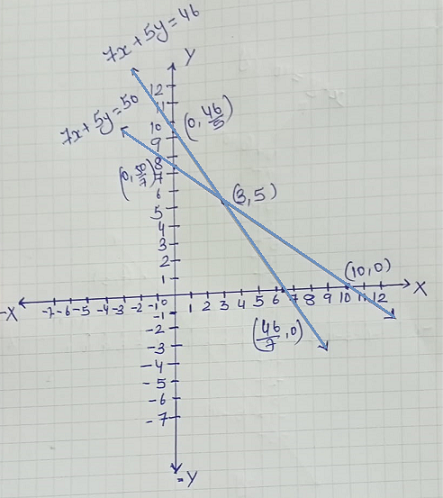 7x + 5y = 46
Y
7x + 5y = 50
12
11
10
9
8
7
6
5
4
3
2
1
(0, 46/5)
(0, 50/7)
(3, 5)
(10, 0)
-X
-7 -6 -5 -4 -3 -2 -1 0 1 2 3 4 5 6 7 8 9 10 11 12
X
(46/7, 0)
-1
-2
-3
-4
-5
-6
-7
-Y